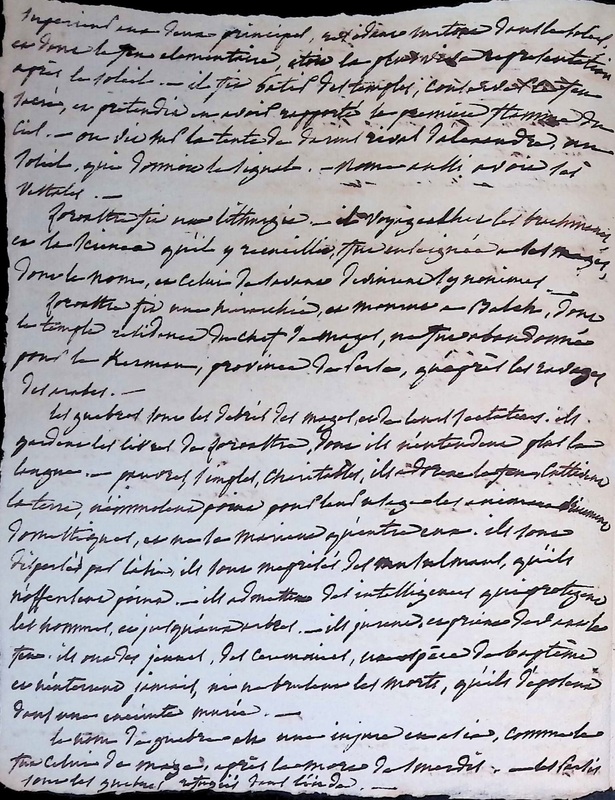 Supérieur aux deux principes, réside surtout dans le soleil,
et dans le feu élémentaire, étoit la plus vive représentation
après le soleil. — il fit bâtir des temples, conserva le feu
sacré, et prétendit en avoir rapporté la première flamme du
Ciel. — on vit sur la tente de darius rival d'alexandre, un
Soleil, qui donnoit le signal. — Rome aussi avoit ses
Vestales. —
Zoroastre fit une lithurgie. — il voyagea chez les brachmanes,
et la science qu'il y recueillit, fut enseignée à les mages,
dont le nom, et celui de savans devinrent synonimes. —
Zoroastre fit une hiérarchie, et mourut à Balch, dont
le temple résidence du chef de mages, ne fut abandonné
pour le Kerman, province de Perse, qu'après les ravages
des arabes. —
les guebres sont les débris des mages, et de leurs sectateurs. ils
gardent les livres de Zoroastre, dont ils n'entendent plus la
langue. — pauvres, simples, charitables, ils adorent le feu, Cultivent
la terre, n'immolent point pour leur usage les animaux
domestiques, et ne se marient qu'entre eux. ils sont
dispersés par l'asie, ils sont méprisés des musulmans, qu'ils
n'offensent point. — ils admettent des intelligences qui protègent
les hommes, et jusqu'aux arbres. — ils jurent, et prient devant le
feu. ils ont des jeunes, des cérémonies, une espèce de baptême
et n'enterrent jamais, ni ne brulent les morts, qu'ils déposent
dans une enceinte murée. —
le nom de guebre est une injure en asie, comme le
fut celui de mage, après la mort de smerdis. — les Parsis
sont les guebres réfugiés dans l'inde. —